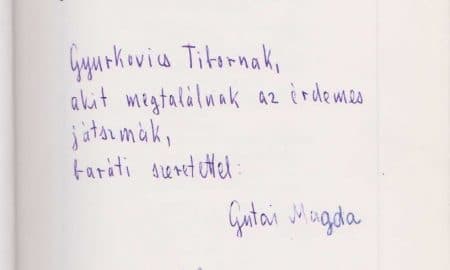 Gyurkovics Tibornak,
akit megtalálnak az érdemes
játszmák,
baráti szeretettel:
Gutai Magda